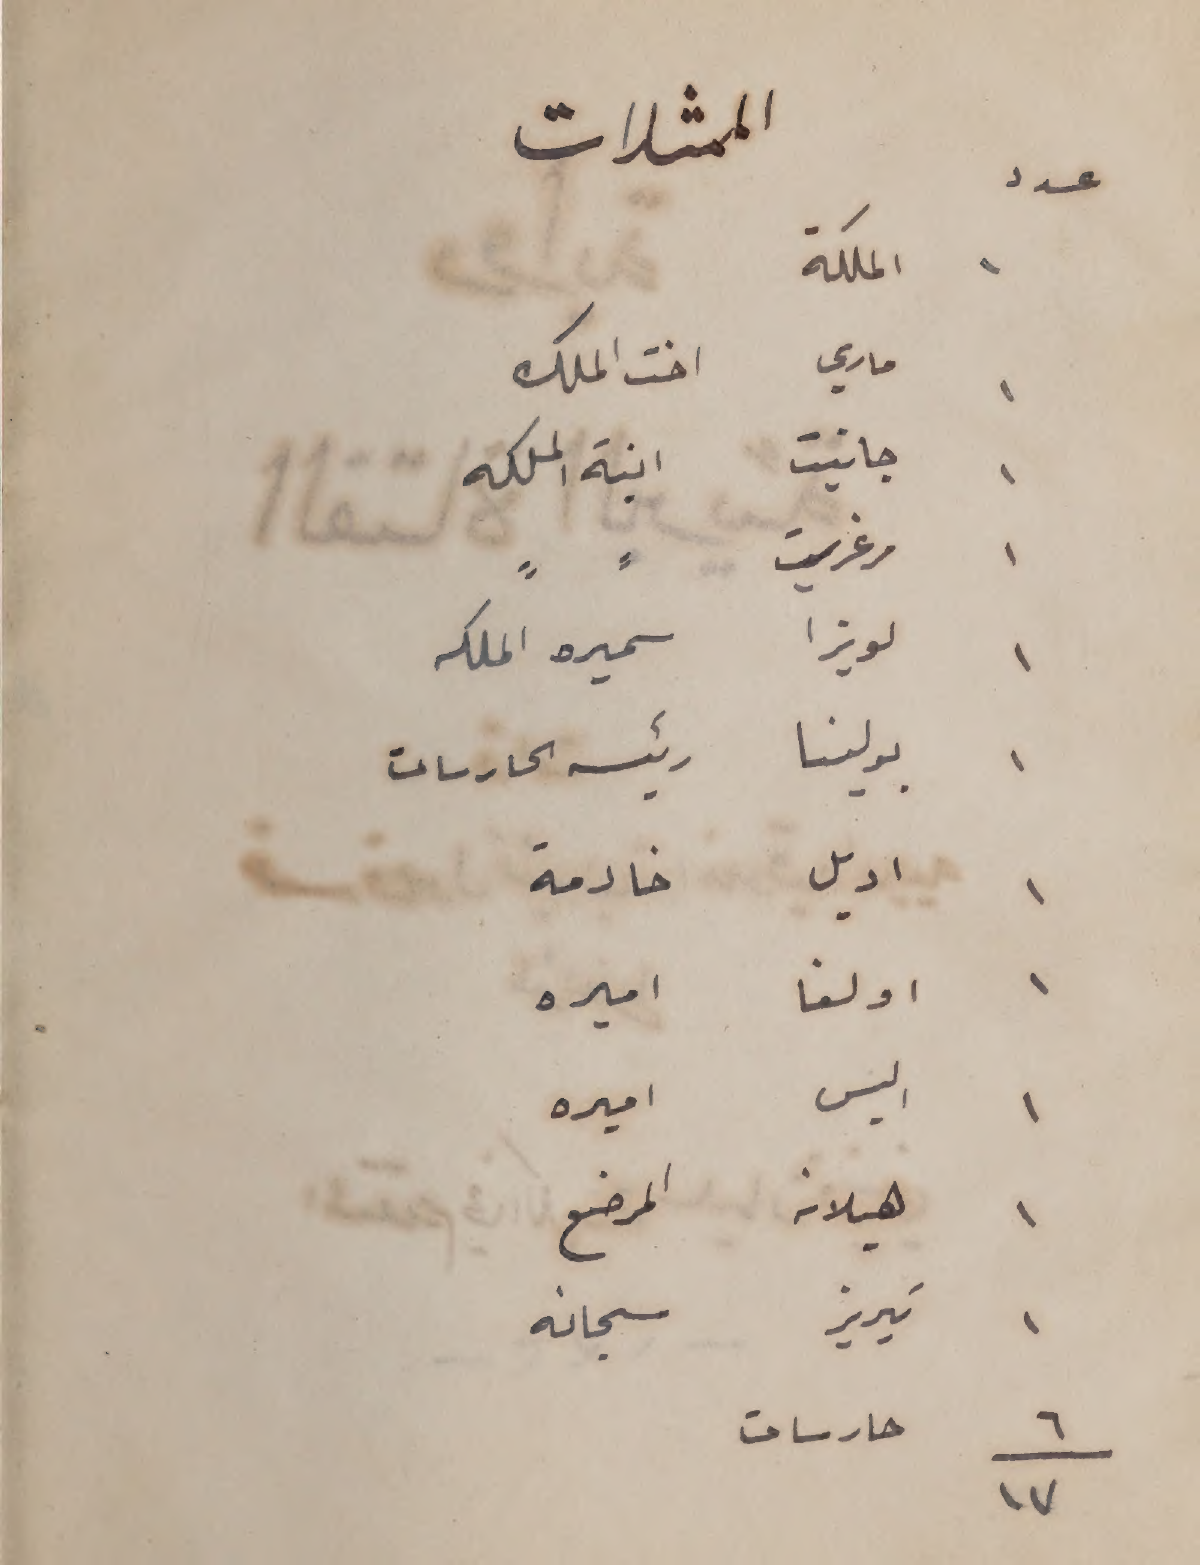 الممثلات
عدد
١ الملكة
١ ماري اخت الملك
١ جانيت ابنة الملكه
١ مرغريت 〃 〃
١ لويزا سميره الملكه
١ بولينا رئيسه الحارسات
١ اديل خادمة
١ اولغا اميره
١ اليس اميره
١ هيلانه المرضع
١ تيريز سجانه
٦ حارسات
١٧